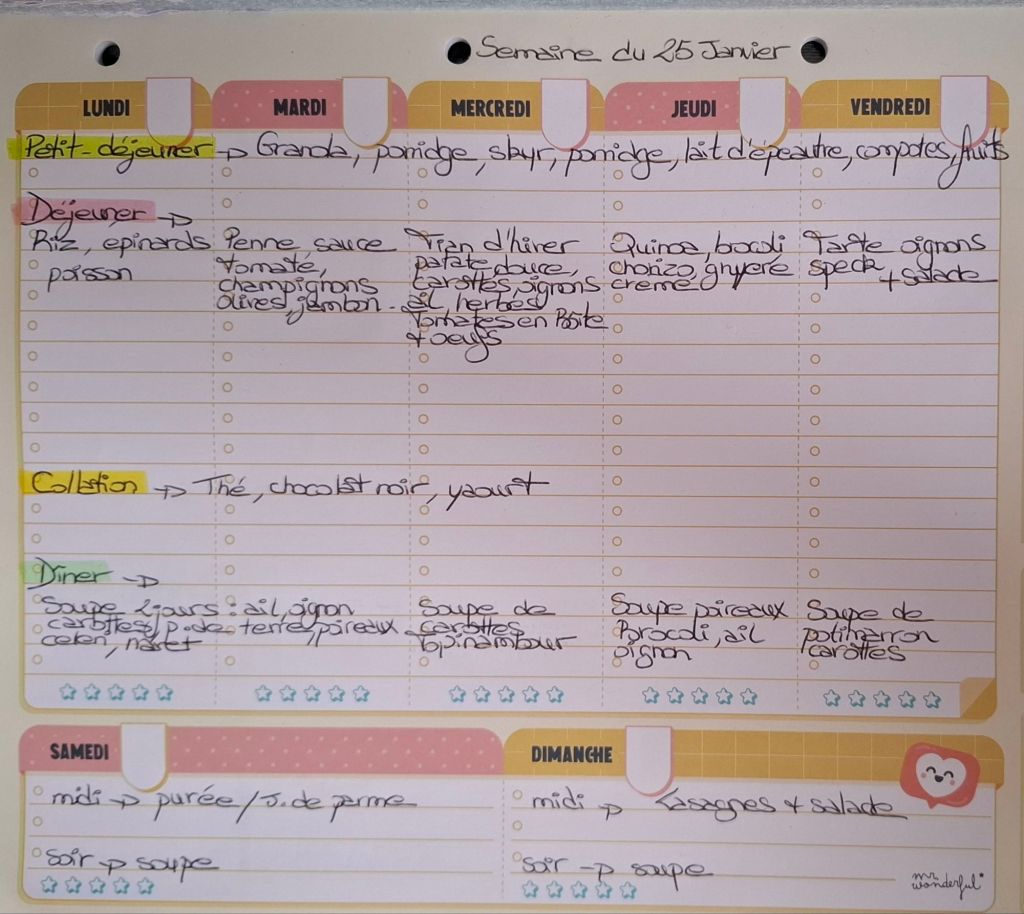 Semaine du 25 Janvier
LUNDI MARDI MERCREDI JEUDI VENDREDI
Petit-déjeuner → Granola, porridge, skyr, porridge, lait d'épeautre, compotes, fruits
Déjeuner →
Riz, epinards
poisson
Penne sauce
tomate,
champignons
olives, jambon.
Tian d'hiver
patate douce,
carottes, oignons
ail, herbes
Tomates en Boîte
+ oeufs
Quinoa, brocoli
chorizo, gruyère
creme
Tarte oignons
speck + salade
Collation → Thé, chocolat noir, yaourt
Diner →
Soupe 2 jours : ail, oignon
carottes/p. de terre/poireaux
celeri, navet
Soupe de
carottes
Topinambour
Soupe poireaux
Brocoli, ail
oignon
Soupe de
potimarron
carottes
SAMEDI
midi → purée/J. de parme
soir → soupe
DIMANCHE
midi → Lasagnes + salade
soir → soupe
mr wonderful*